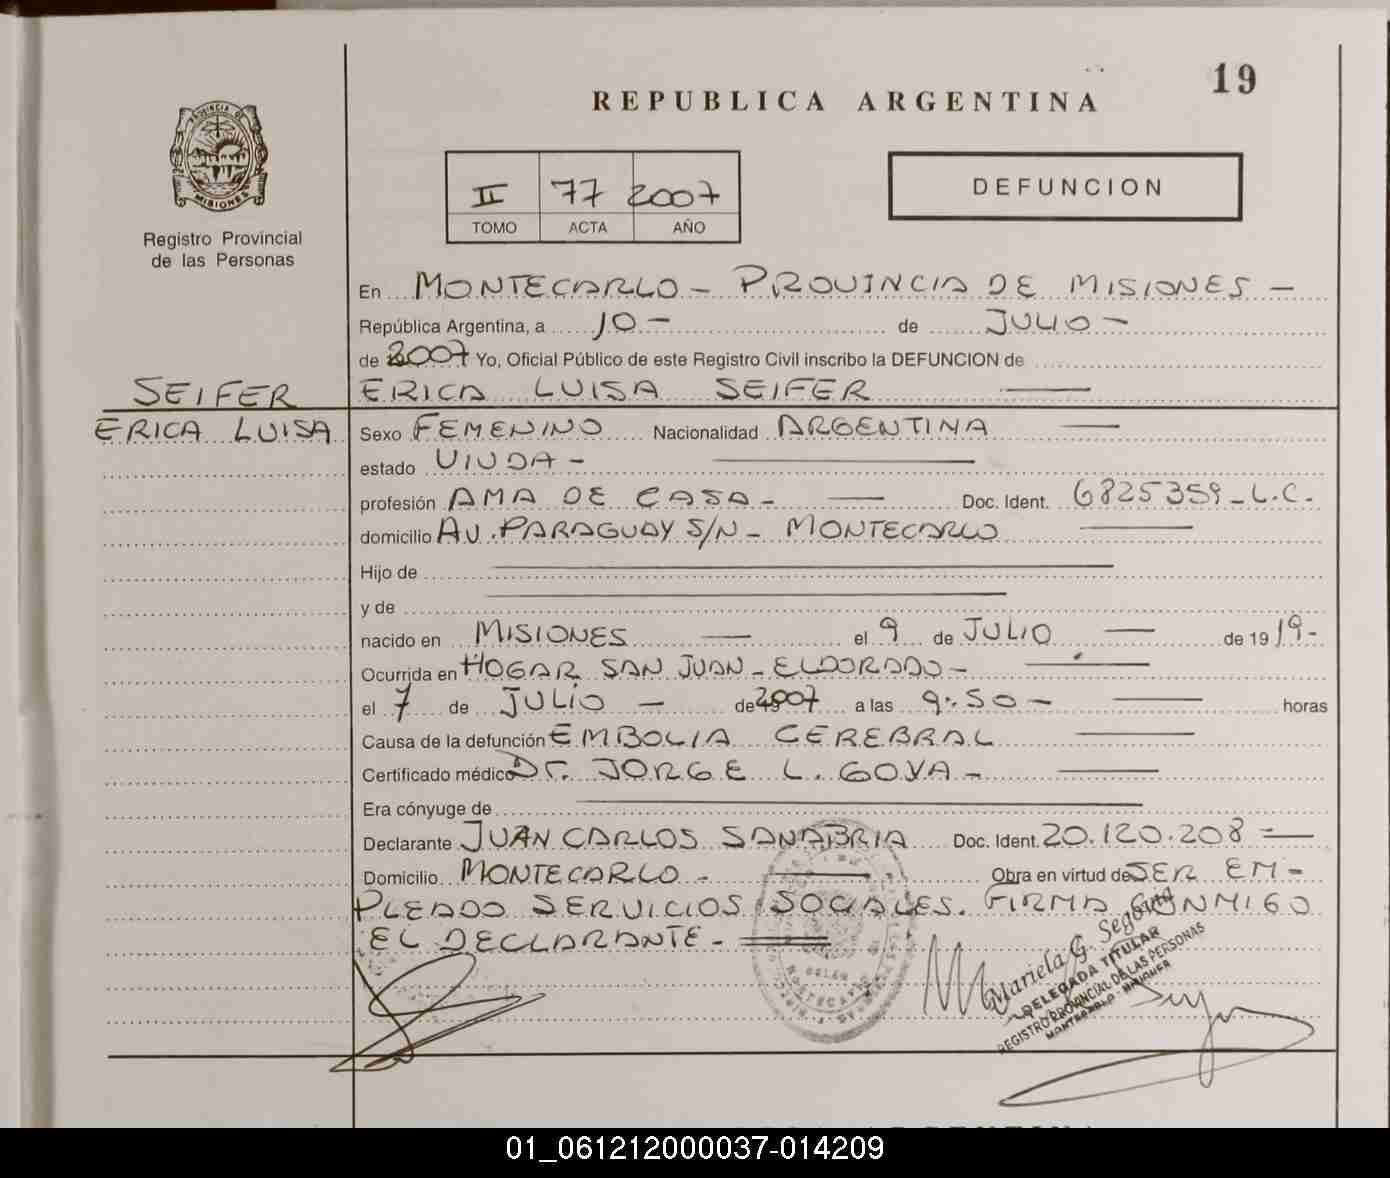 19
REPUBLICA ARGENTINA
PROVINCIA DE
MISIONES
Registro Provincial
de las Personas
II 77 2007
TOMO ACTA AÑO
DEFUNCION
En MONTECARLO - PROVINCIA DE MISIONES -
República Argentina, a 10 - de JULIO -
de 2007 Yo, Oficial Público de este Registro Civil inscribo la DEFUNCION de
SEIFER
ERICA LUISA
ERICA LUISA SEIFER
Sexo FEMENINO Nacionalidad ARGENTINA
estado VIUDA -
profesión AMA DE CASA - Doc. Ident. 6825359 - L.C.
domicilio AV. PARAGUAY S/N - MONTECARLO
Hijo de
y de
nacido en MISIONES el 9 de JULIO de 19 19-
Ocurrida en HOGAR SAN JUAN - ELDORADO -
el 7 de JULIO - de 2007 a las 9:50 - horas
Causa de la defunción EMBOLIA CEREBRAL
Certificado médico Dr. JORGE L. GOYA -
Era cónyuge de
Declarante JUAN CARLOS SANABRIA Doc. Ident. 20.120.208 -
Domicilio MONTECARLO - Obra en virtud de SER EM-
PLEADO SERVICIOS SOCIALES. FIRMA CONMIGO
EL DECLARANTE -
Mariela G. Segovia
DELEGADA TITULAR
REGISTRO PROVINCIAL DE LAS PERSONAS
MONTECARLO - MISIONES
01_061212000037-014209